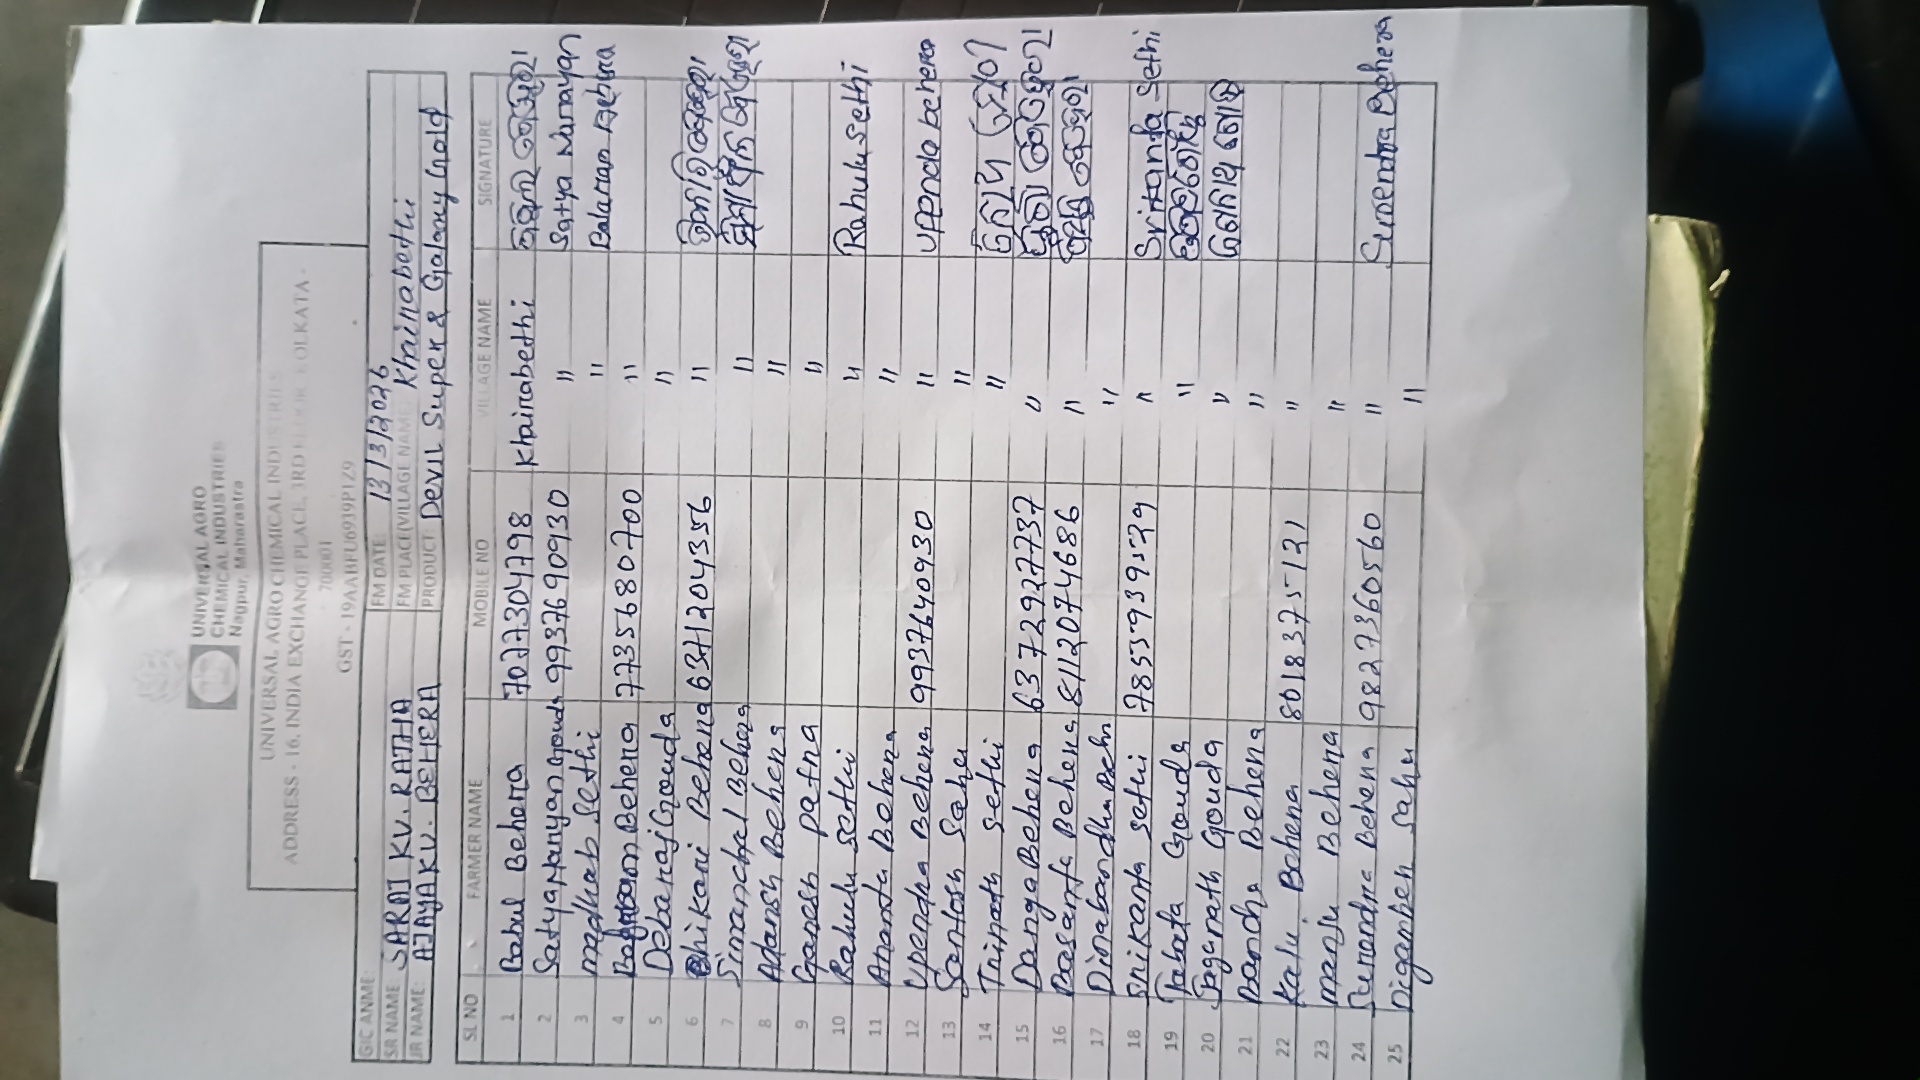 UNIVERSAL AGRO
CHEMICAL INDUSTRIES
Nagpur, Maharastra
UNIVERSAL AGRO CHEMICAL INDUSTRIES
ADDRESS - 16, INDIA EXCHANGE PLACE, 3RD FLOOR, KOLKATA -
700001
GST - 19AABFU6939P1Z9
GIC ANME:
FM DATE: 13/3/2026
SR NAME: SAROJ KU. RATHA FM PLACE(VILLAGE NAME: Khairabethi
JR NAME: AJAYA KU. BEHERA PRODUCT: Devil Super & Galaxy Gold
SL NO FARMER NAME MOBILE NO VILLAGE NAME SIGNATURE
1 Babul Behera 7077304798 Khairabethi
2 Satyanarayan Gouda 9937690930 " Satya Narayan
3 madhab Sethi " Balaram Behera
4 Balaram Behera 7735680700 "
5 Debaraj Gouda "
6 Bhikari Behera 6371204356 "
7 Simanchal Behera "
8 Adansh Behera "
9 Ganesh patra "
10 Rahulu sethi " Rahulu sethi
11 Ananta Behera "
12 Upendra Behera 9937640930 " upendra behera
13 Santosh Sahu "
14 Trinath sethi "
15 Danga Behera 6372927737 "
16 Basanta Behera 8112074686 "
17 Dinabandhu "
18 Srikanta sethi 7855939529 " Srikanta Sethi
19 Tahata Gouda "
20 Jaganath Gouda "
21 Pancha Behera "
22 Kalu Behera 8018375121 "
23 manju Behera "
24 Surendra Behera 9827360560 " Surendra Behera
25 Digamber Sahu "